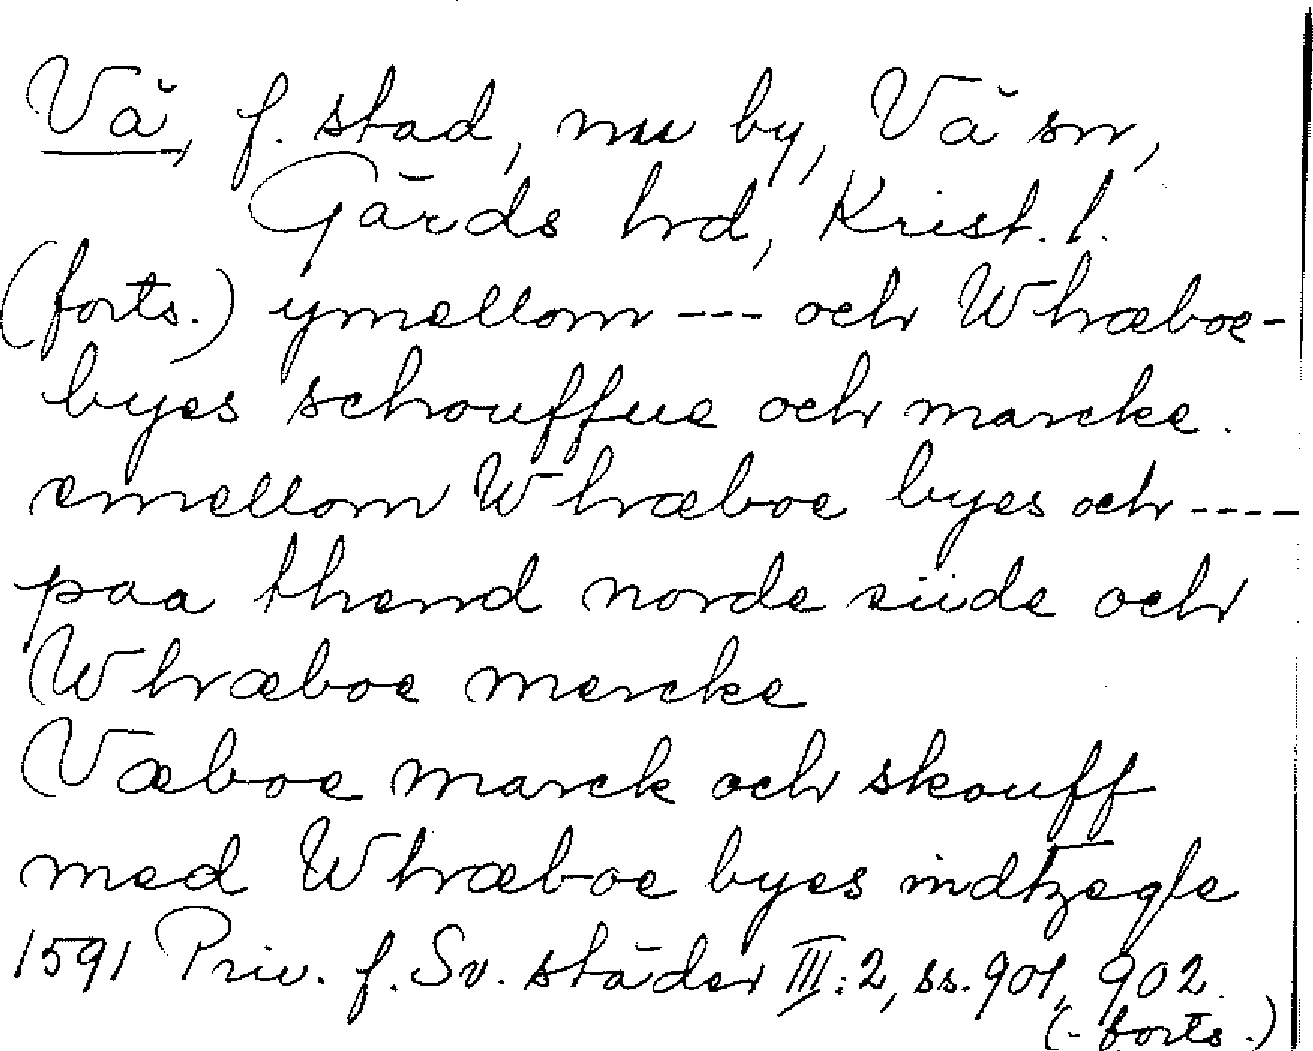 Vä, f. stad, nu by, Vä sn,
Gärds hd, Krist. l.
(forts.) ymellom --- och Whæboe-
byes schouffue och marcke.
emellom Whæboe byes och ----
paa thend norde siide och
Whæboe mercke
Væboe marck och skouff
med Whæboe byes indtzegle
1591 Priv. f. Sv. städer III:2, ss. 901, 902.
(- forts.)